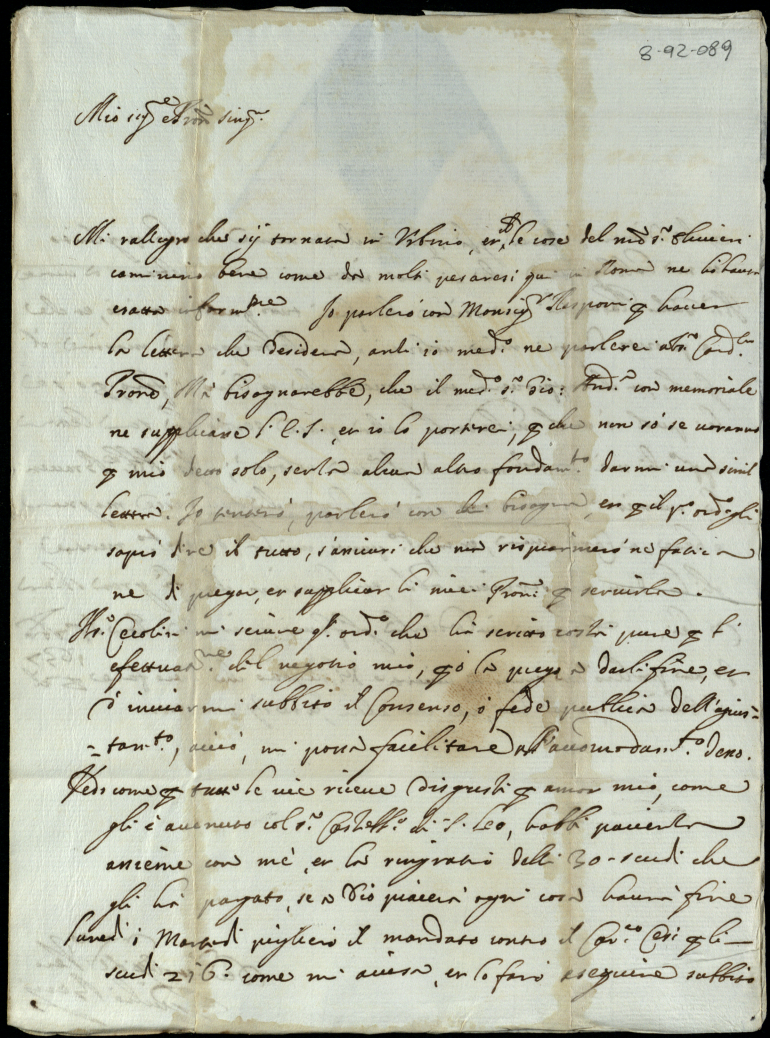 8-92-089
Mio sig.re e Pron sing.r
Mi rallegro che sij tornata in Urbino, et le cose del med.o s.r Olivieri
caminino bene come da molti pesaresi qui in Roma ne ho havuta
esatta inform.ne Io parlerò con Monsig.r Rasponi p haver
la lettera che desidera, anti io med.o ne parlerei al s.r Card.le
Prone, Mà bisognarebbe, che il med.o s.r Gio: And.a con memoriale
ne supplicasse S. E. S. et io lo porterei, p che non sò se voranno
p mio detto solo, senza alcun altro fondam.to darmi una simil
lettera. Io tenterò, parlerò con chi bisogna, et p il p.o ord.o gli
saprò dire il tutto, s'assicuri che non risparmierò ne fatica
ne di pregar, et supplicar li miei Proni p servirla.
Il s.r Cecolini mi scrive q.o ord.o che hà scritto costì pure p l'
efettuat.ne del negotio mio, p ò la prego a darli fine, et
à inviarmi subbito il Consenso, ò fede publica dell'agius=
=tam.to, acciò, mi possa facilitare all'accomodam.to detto.
Vedo come p tutte le vie riceve disgusti p amor mio, come
gli è avenuto col s.r Castell.o di S. Leo, habbi patienza
assieme con mè, et la ringratio delli 30 scudi che
gli hà pagato, se a Dio piacerà ogni cosa haverà fine
lunedi ò Martedi piglierò il mandato contro il Cav.ro Ceri p li
scudi 216. come mi avisa, et lo farò eseguire subbito